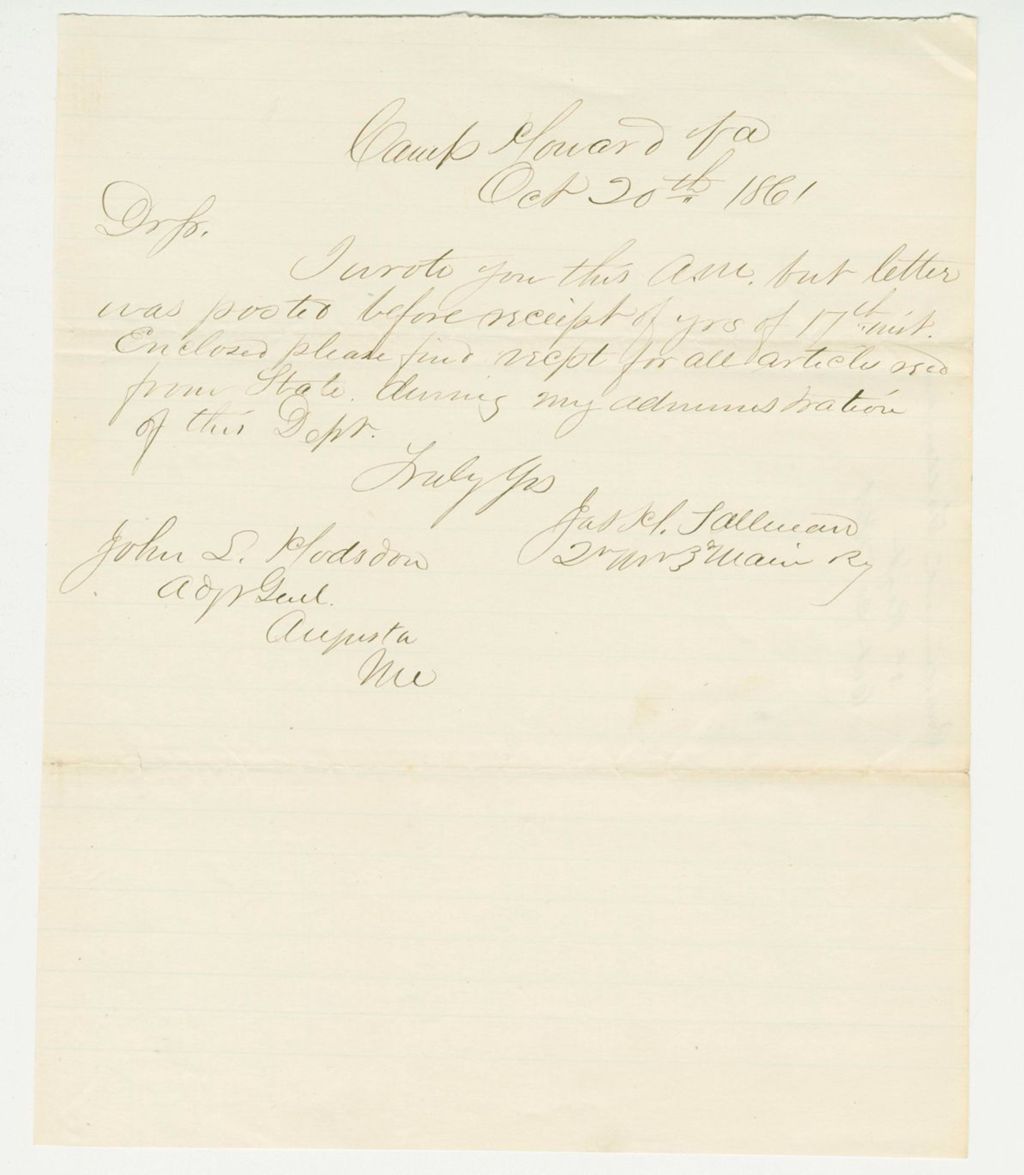 Camp Howard Va
Oct 20th 1861
Dr Sr.
I wrote you this A.M. but letter
was posted before receipt of yrs of 17th inst.
Enclosed please find recpt for all articles recd
from State during my administration
of this Dept.
Truly Yrs
Jas H. Tallman
2r Mr 3d Main Rg
John L. Hodsdon
Adjt Genl.
Augusta
Me